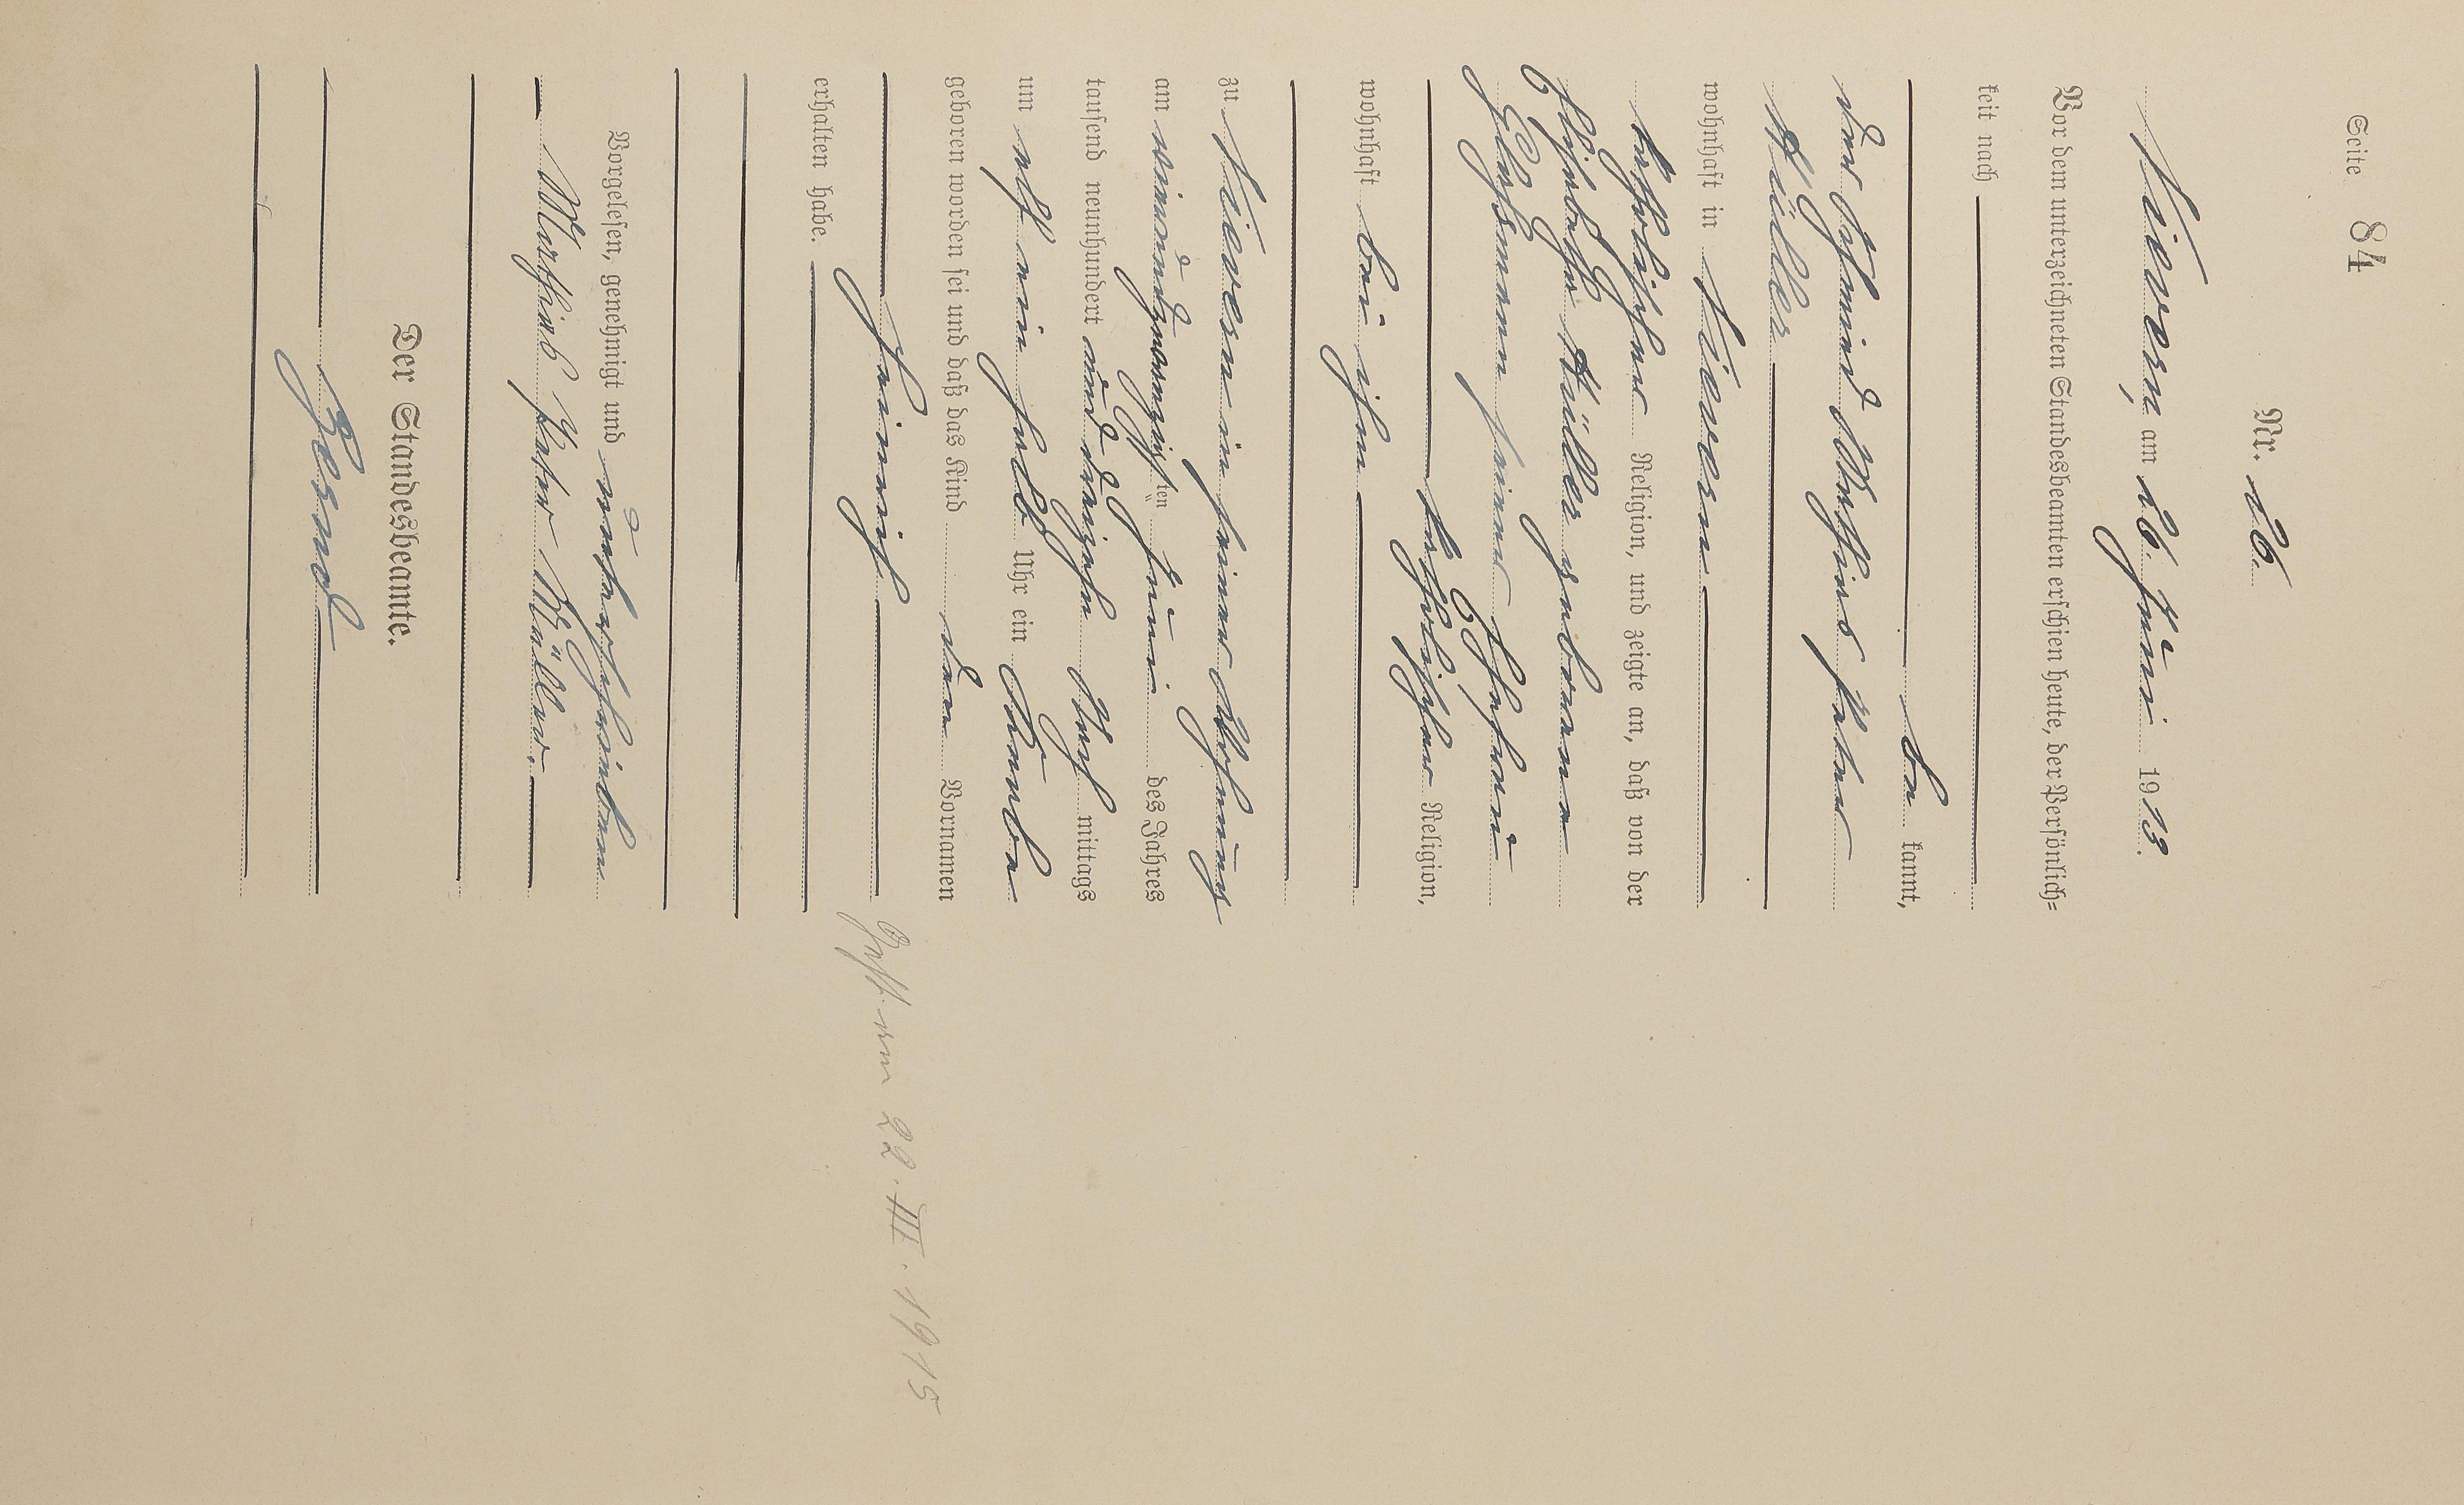 Seite 84
Nr. 26.
Nievern, am 26. Juni 1913.
Vor dem unterzeichneten Standesbeamten erschien heute, der Persönlich=
keit nach
be kannt,
der Schmied Mathias Peter
Müller
wohnhaft in Nievern
katholischer Religion, und zeigte an, daß von der
Elisabetha Müller geborene
seiner Ehefrau
katholischer Religion,
wohnhaft bei ihm
zu Nievern in seiner Wohnung
am vierundzwanzigsten Juni des Jahres
tausend neunhundert und dreizehn Nach mittags
um elf ein halb Uhr ein Knabe
geboren worden sei und daß das Kind den Vornamen
Heinrich
erhalten habe.
Gest. am 22. III. 1915
Vorgelesen, genehmigt und unterschrieben
Mathias Peter Müller.
Der Standesbeamte.